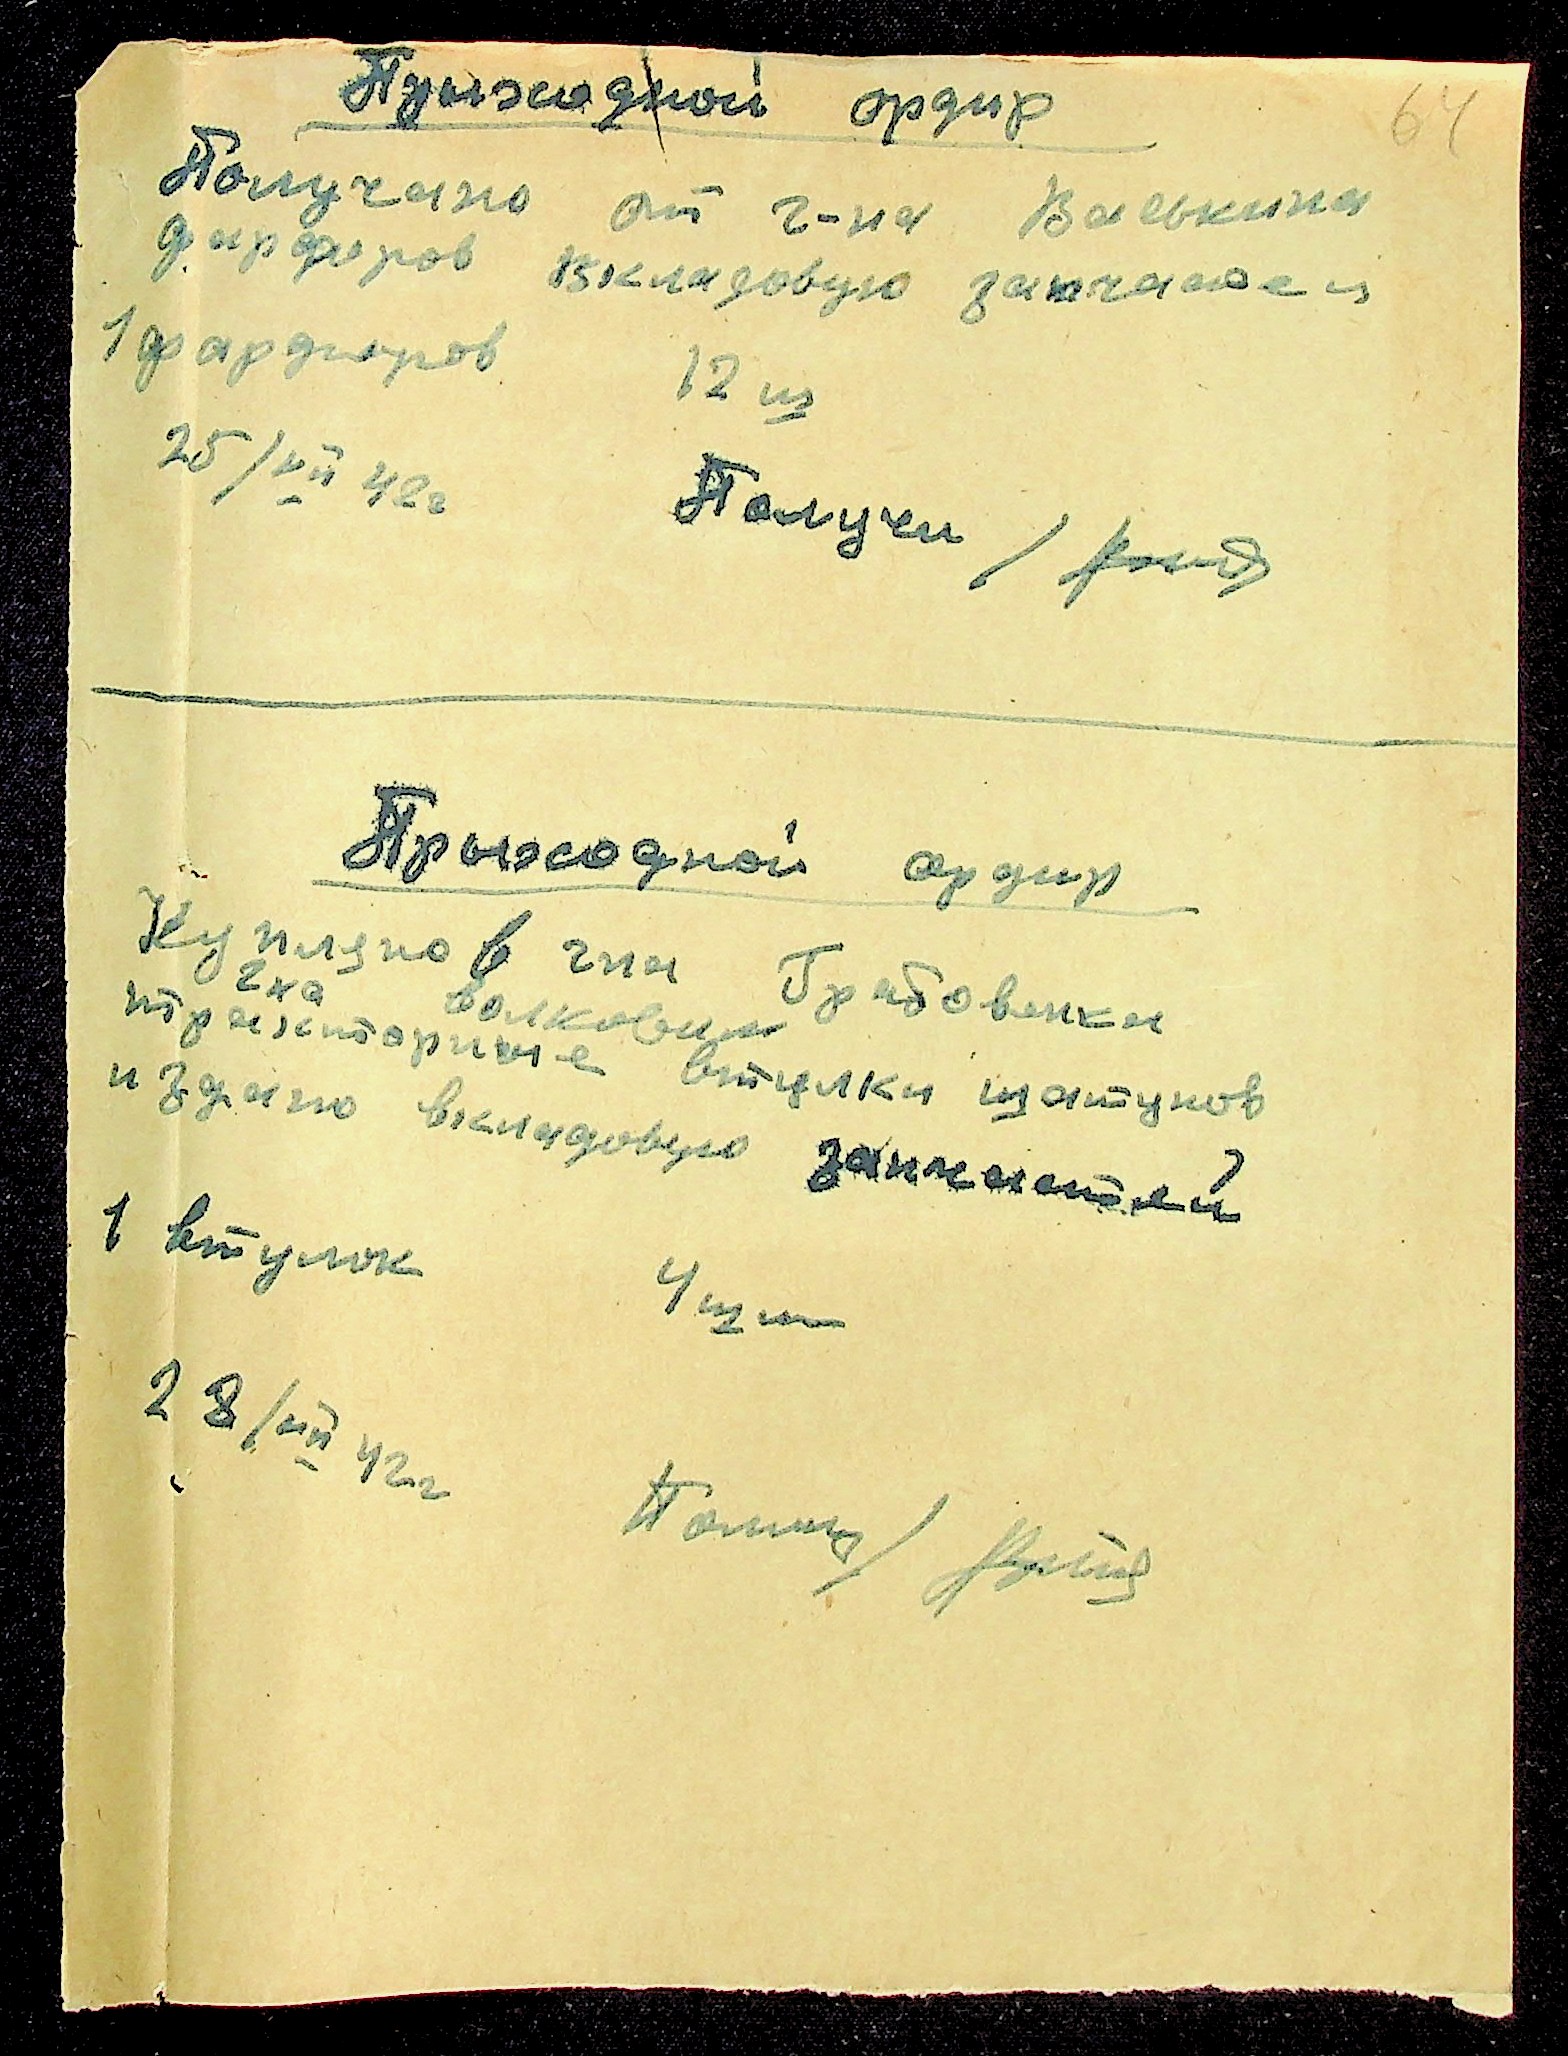 64
Прыходной ордир
Получано от г-на Васькина
фарфоров вкладовую запчастей
1 фарфоров 12 ш
25/VII 42г
Получи /
Прыходной ордир
Куплэно в гна Грабовенка
гна Волковим
тракторные втулки шатунов
и здано вкладовую запчастей
1 втулок 4 шт
28/VII 42г